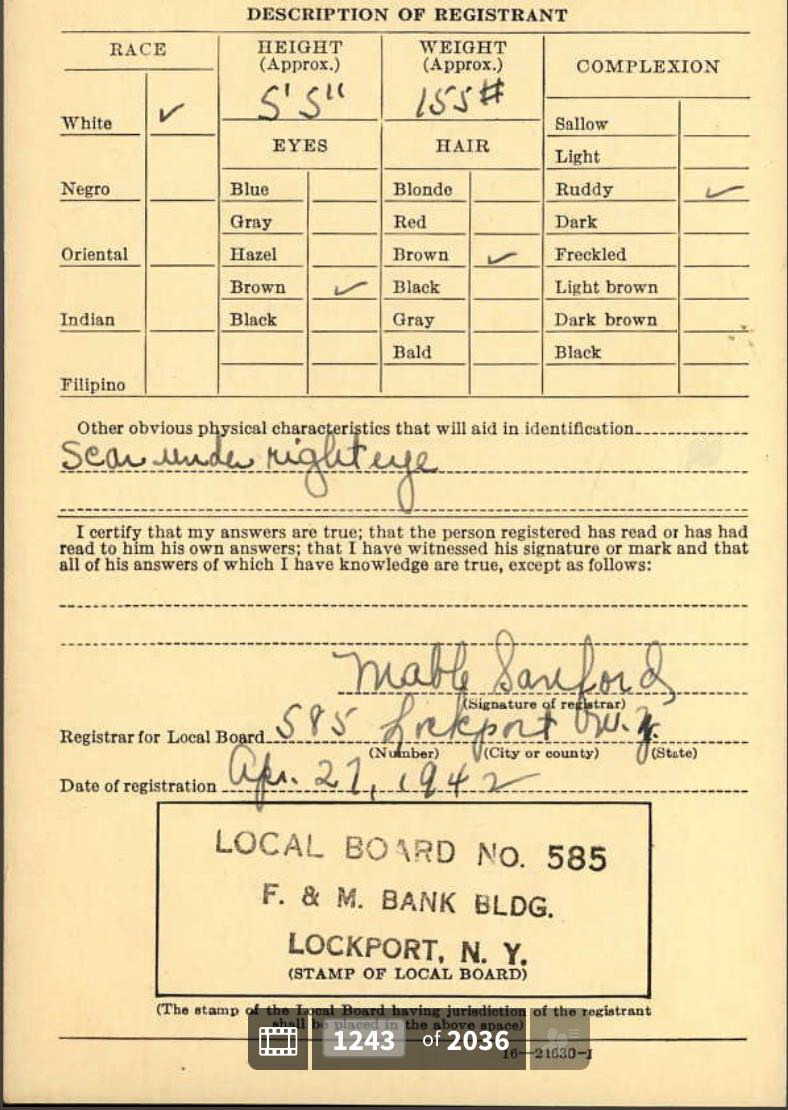 DESCRIPTION OF REGISTRANT
RACE HEIGHT (Approx.) WEIGHT (Approx.) COMPLEXION
5' 5" 155#
White ✓ Sallow
EYES HAIR Light
Negro Blue Blonde Ruddy ✓
Gray Red Dark
Oriental Hazel Brown ✓ Freckled
Brown ✓ Black Light brown
Indian Black Gray Dark brown
Bald Black
Filipino
Other obvious physical characteristics that will aid in identification
Scar under right eye
I certify that my answers are true; that the person registered has read or has had
read to him his own answers; that I have witnessed his signature or mark and that
all of his answers of which I have knowledge are true, except as follows:
Mable Sanford
(Signature of registrar)
Registrar for Local Board 585 Lockport N.Y.
(Number) (City or county) (State)
Date of registration Apr. 27, 1942
LOCAL BOARD NO. 585
F. & M. BANK BLDG.
LOCKPORT, N. Y.
(STAMP OF LOCAL BOARD)
(The stamp of the Local Board having jurisdiction of the registrant
shall be placed in the above space)
1243 of 2036
16—21630-1